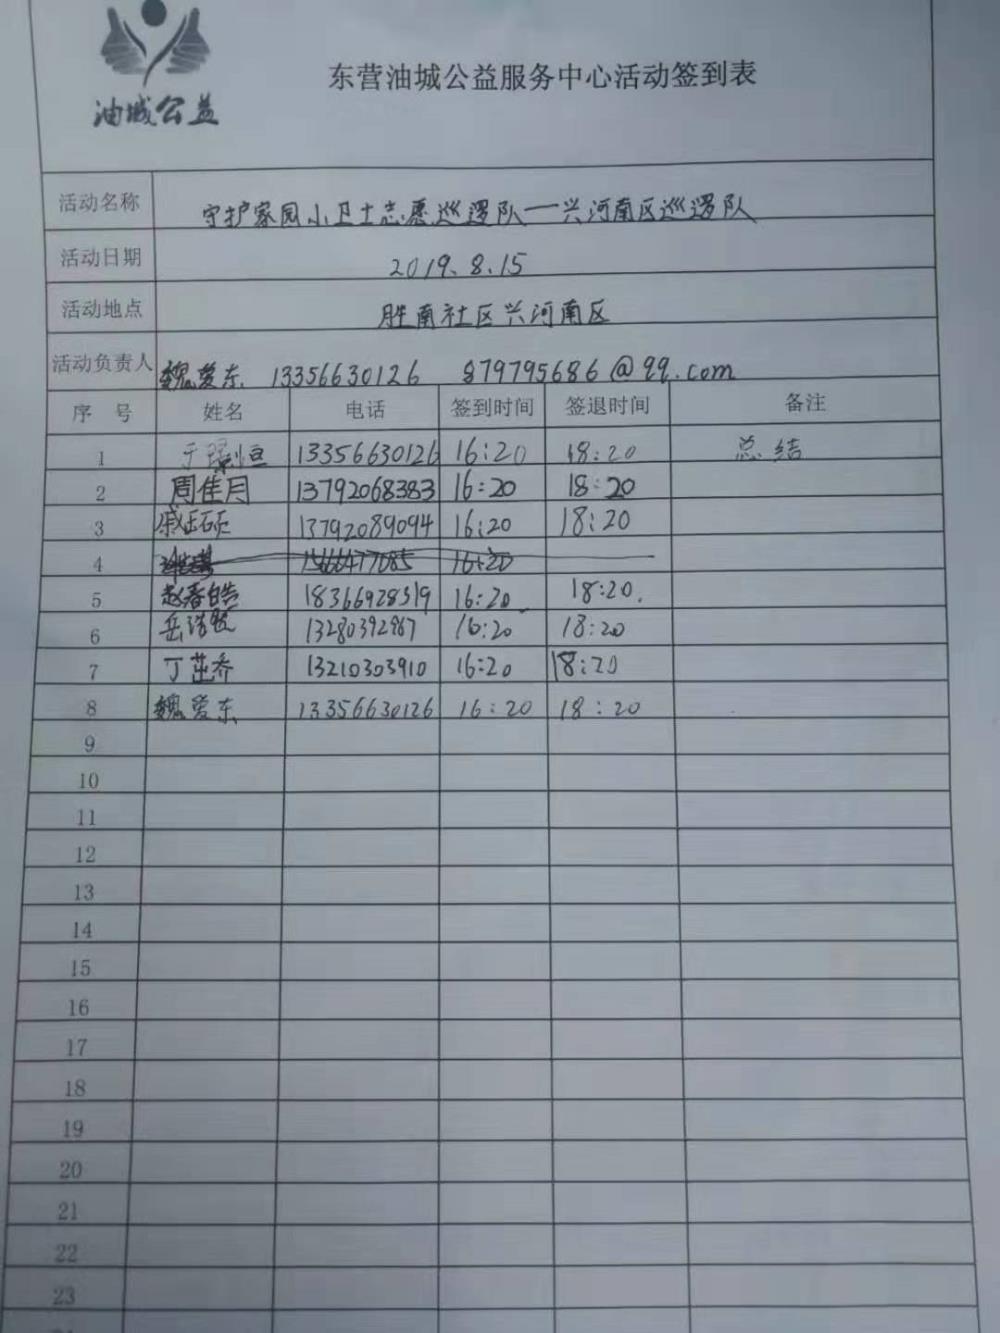 油城公益
东营油城公益服务中心活动签到表
活动名称 守护家园小卫士志愿巡逻队—兴河南区巡逻队
活动日期 2019.8.15
活动地点 胜南社区兴河南区
活动负责人 魏爱东 13356630126 879795686@qq.com
序号 姓名 电话 签到时间 签退时间 备注
1 13356630126 16:20 18:20 总结
2 周佳月 13792068383 16:20 18:20
3 13792089094 16:20 18:20
4 16:20
5 赵春皓 18366928319 16:20 18:20.
6 13280392967 16:20 18:20
7 丁芷乔 13210303910 16:20 18:20
8 魏爱东 13356630126 16:20 18:20
9
10
11
12
13
14
15
16
17
18
19
20
21
22
23